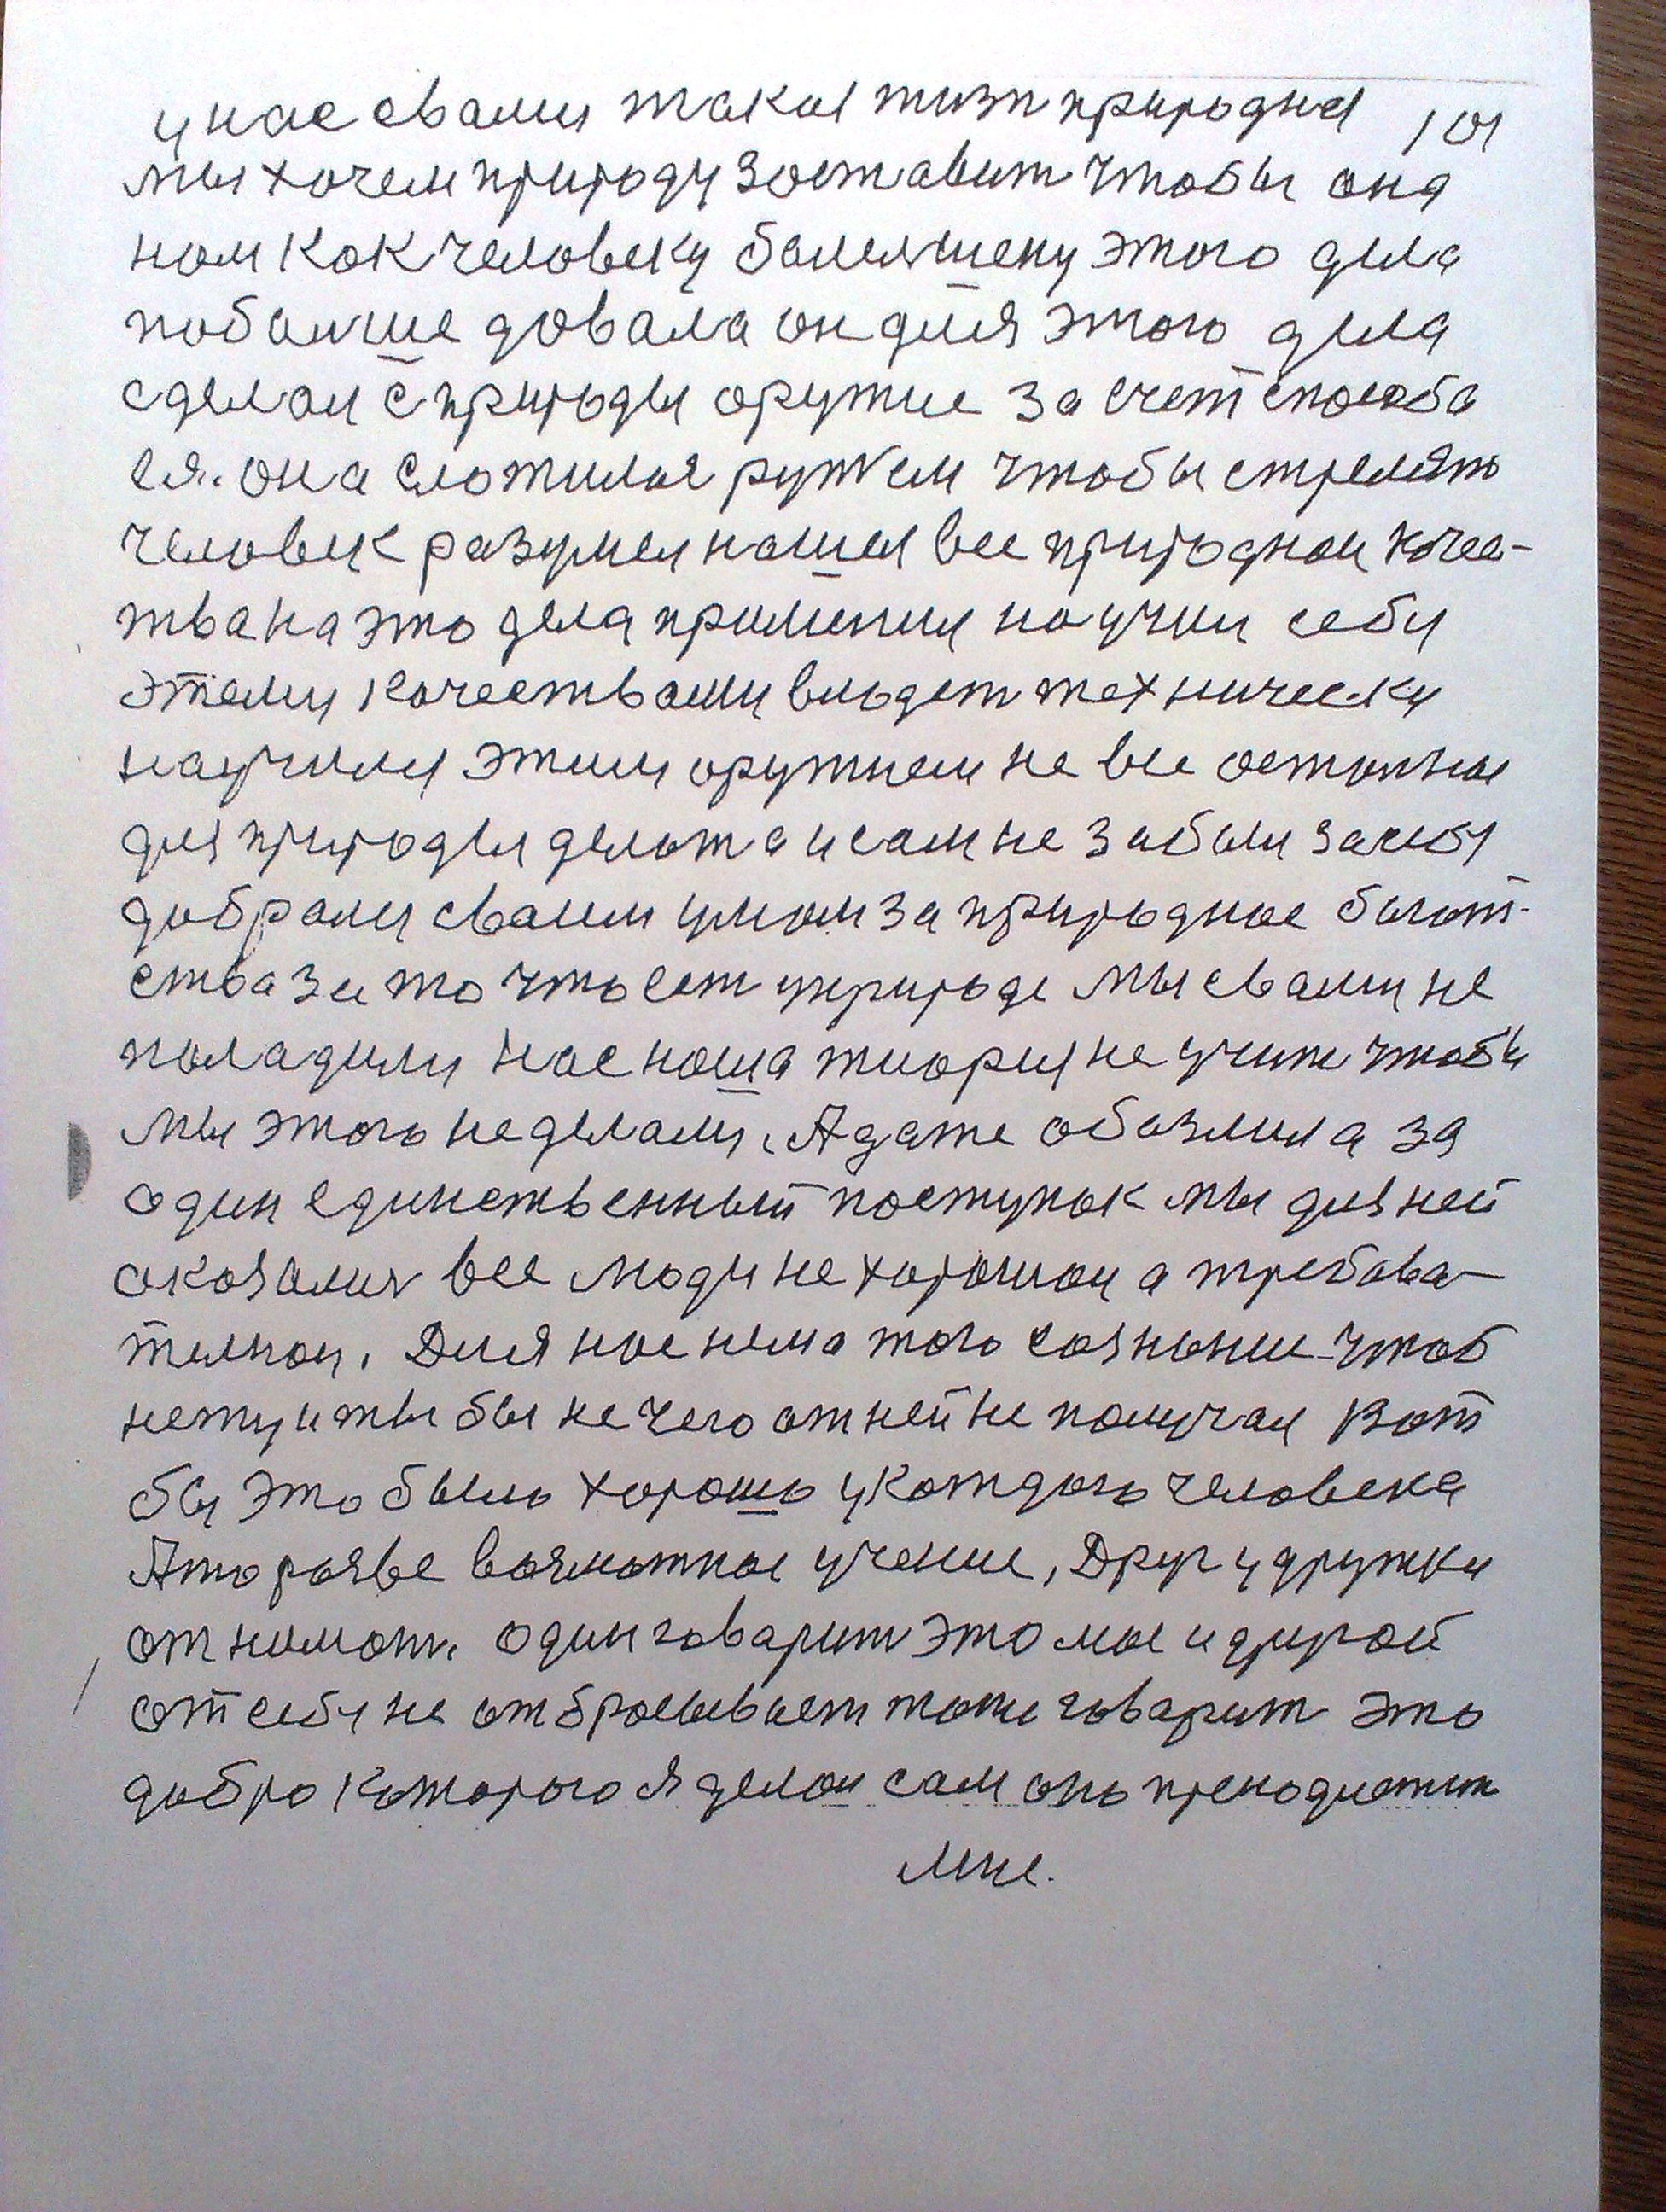 у нас свами такая жизн природная 101
мы хочем природу зоставит чтобы она
ном кок человеку болемшему этого дела
побалше довала он для этого дела
сделал с природы оружие за счет способа
ея. она сложилас ружем чтобы стрелять
человек разумел нашел все природнои качес-
тва на это дела применил научил себя
этами качествами владет техническу
научился этим оружием не все осталное
для природы делат а и сам не забыл за себя
добрался сваим умом за природное богат-
ства за то что ест уприроде мы свами не
паладили нас ноша тиория не учит чтобы
мы этого неделали. А даже обазлила за
один единственный поступок мы для ней
оказалис все люди не хорошои а требава-
телнои. Для нас нема того сазнание чтоб
нету и ты бы не чего от ней не получал Вот
бы это было хорошо укождого человека
Ато разве вазможное учение, Друг у дружки
отнимат. один говарит это мое и другой
от себя не отбросывает тоже говарит это
добро которого я делал сам оно преподнет
мне.